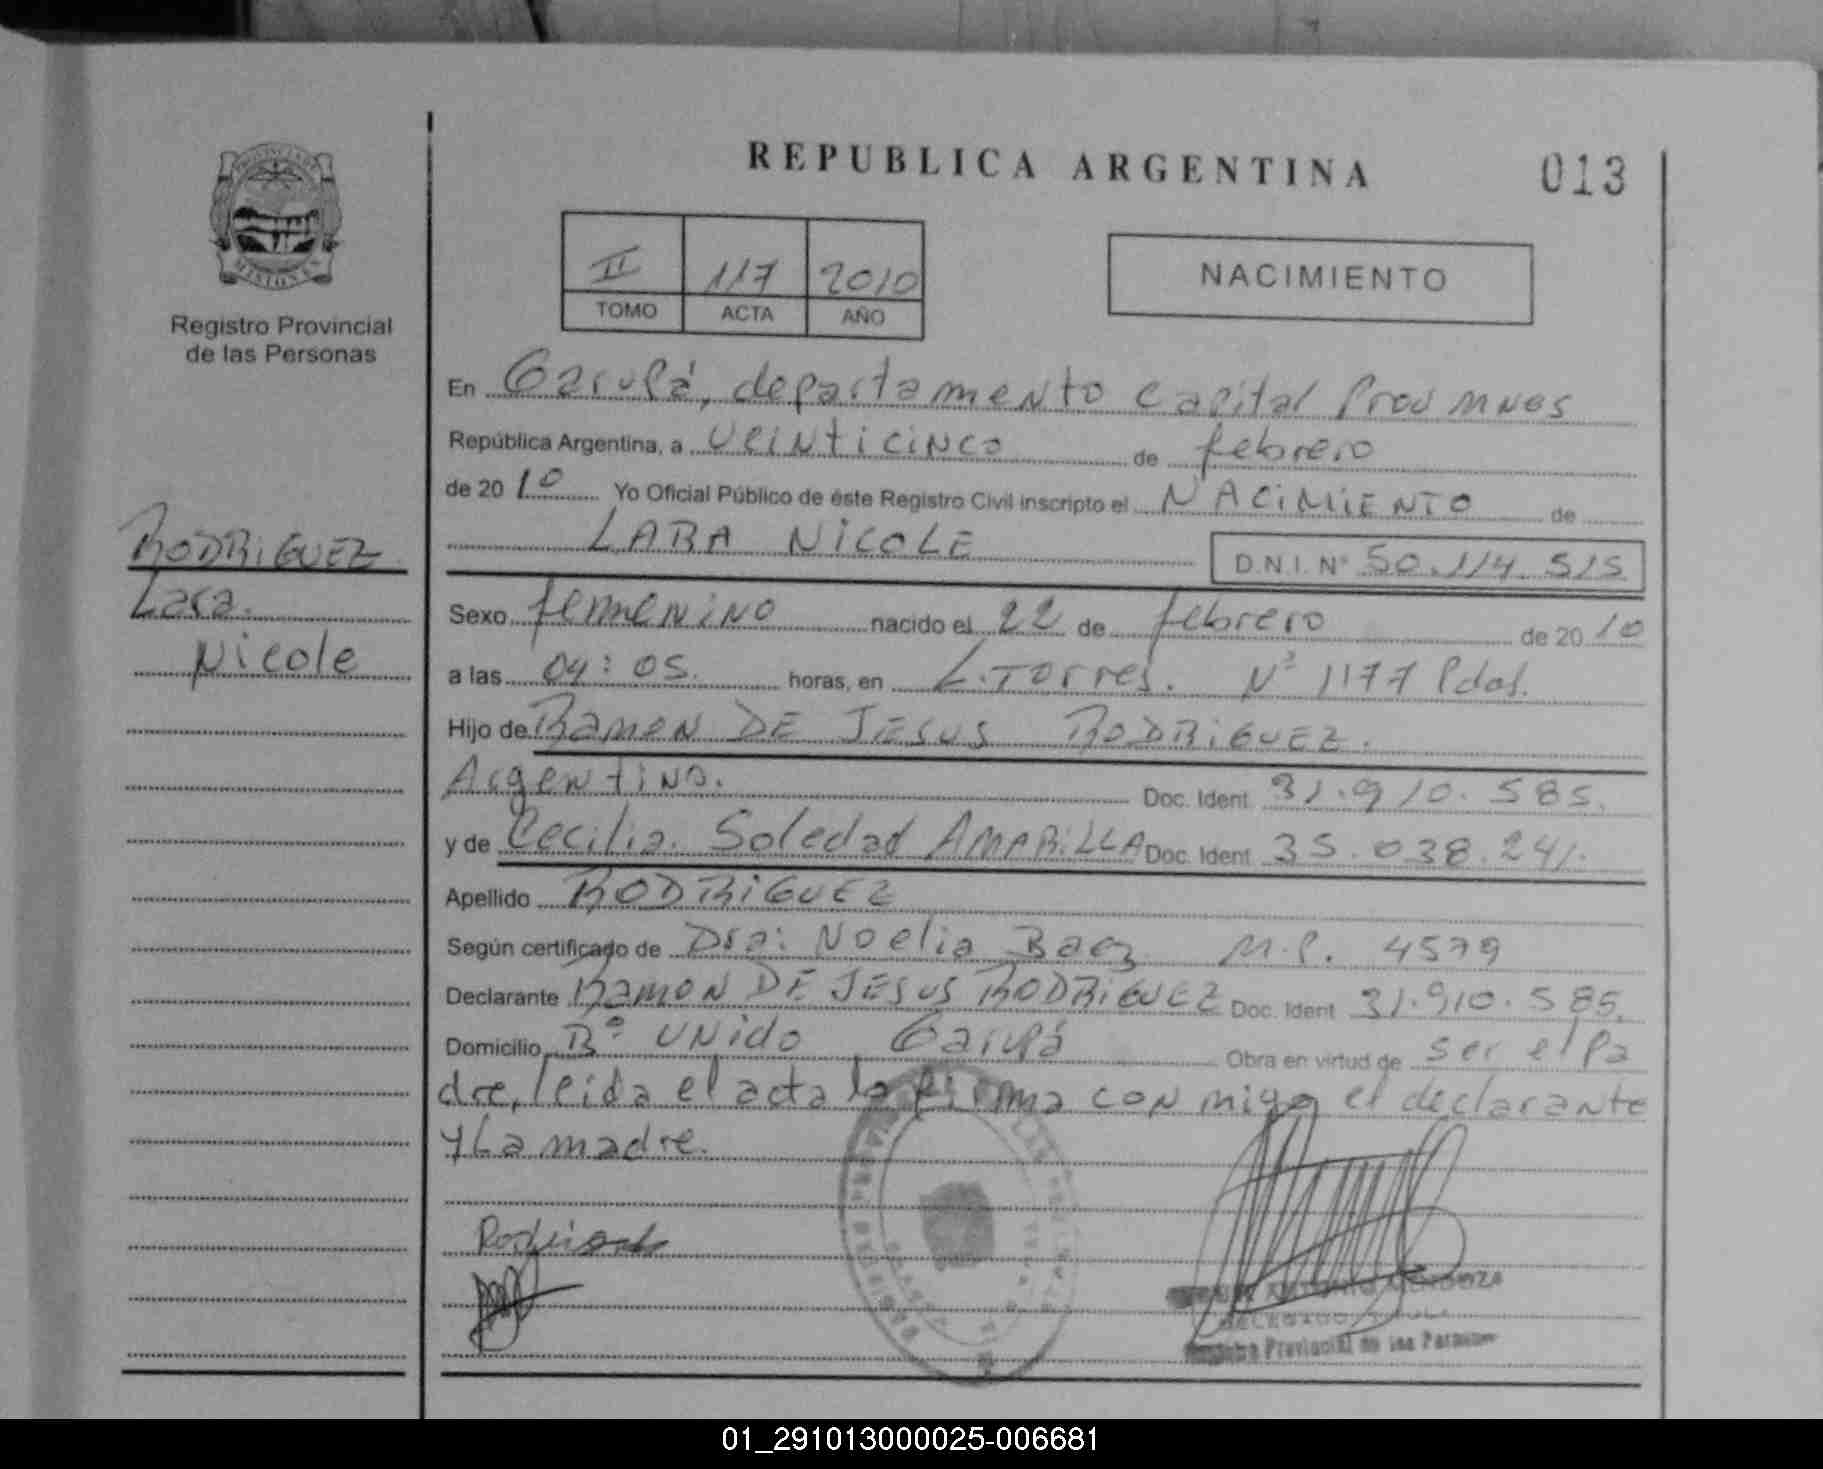 REPUBLICA ARGENTINA
013
PROVINCIA DE
MISIONES
Registro Provincial
de las Personas
II 117 2010
TOMO ACTA AÑO
NACIMIENTO
En Garupá, departamento Capital Prov Mnes
República Argentina, a veinticinco de febrero
de 2010 Yo Oficial Público de éste Registro Civil inscripto el NACIMIENTO de
LARA NICOLE D.N.I. Nº 50.114.515
RODRIGUEZ
Lara.
Nicole
Sexo femenino nacido el 22 de febrero de 2010
a las 04:05. horas, en L. Torres. Nº 1177 Pdas.
Hijo de RAMON DE JESUS RODRIGUEZ.
Argentino. Doc. Ident 31.910.585.
y de Cecilia Soledad AMARILLA Doc. Ident 35.038.241.
Apellido RODRIGUEZ
Según certificado de Dra: Noelia Baez M.P. 4579
Declarante RAMON DE JESUS RODRIGUEZ Doc. Ident 31.910.585.
Domicilio Bº UNido Garupá Obra en virtud de ser el pa
dre, leida el acta la firma con migo el declarante
y La madre.
Registro Provincial de las Personas
01_291013000025-006681